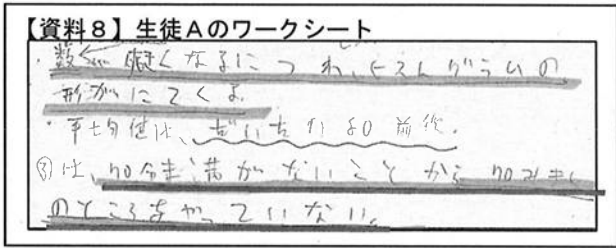 【資料8】生徒Aのワークシート
・数が 大きくなるにつれ、ヒストグラムの
形がにてくる
・平均値は、だいたい50前後。
③は、70分未満がないことから70分未満
のところをやっていない。